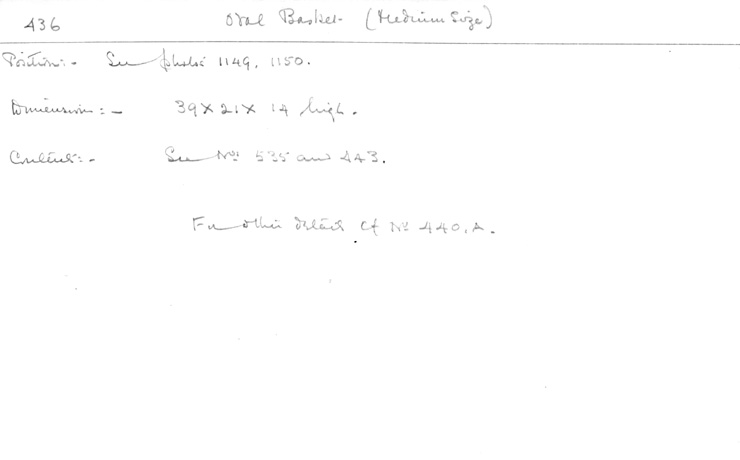 436 Oval Basket (Medium Size)
Position:- See photos 1149, 1150.
Dimensions:- 39 X 21 X 14 high.
Contents:- See Nos 535 and 443.
For other details cf No 440, A.